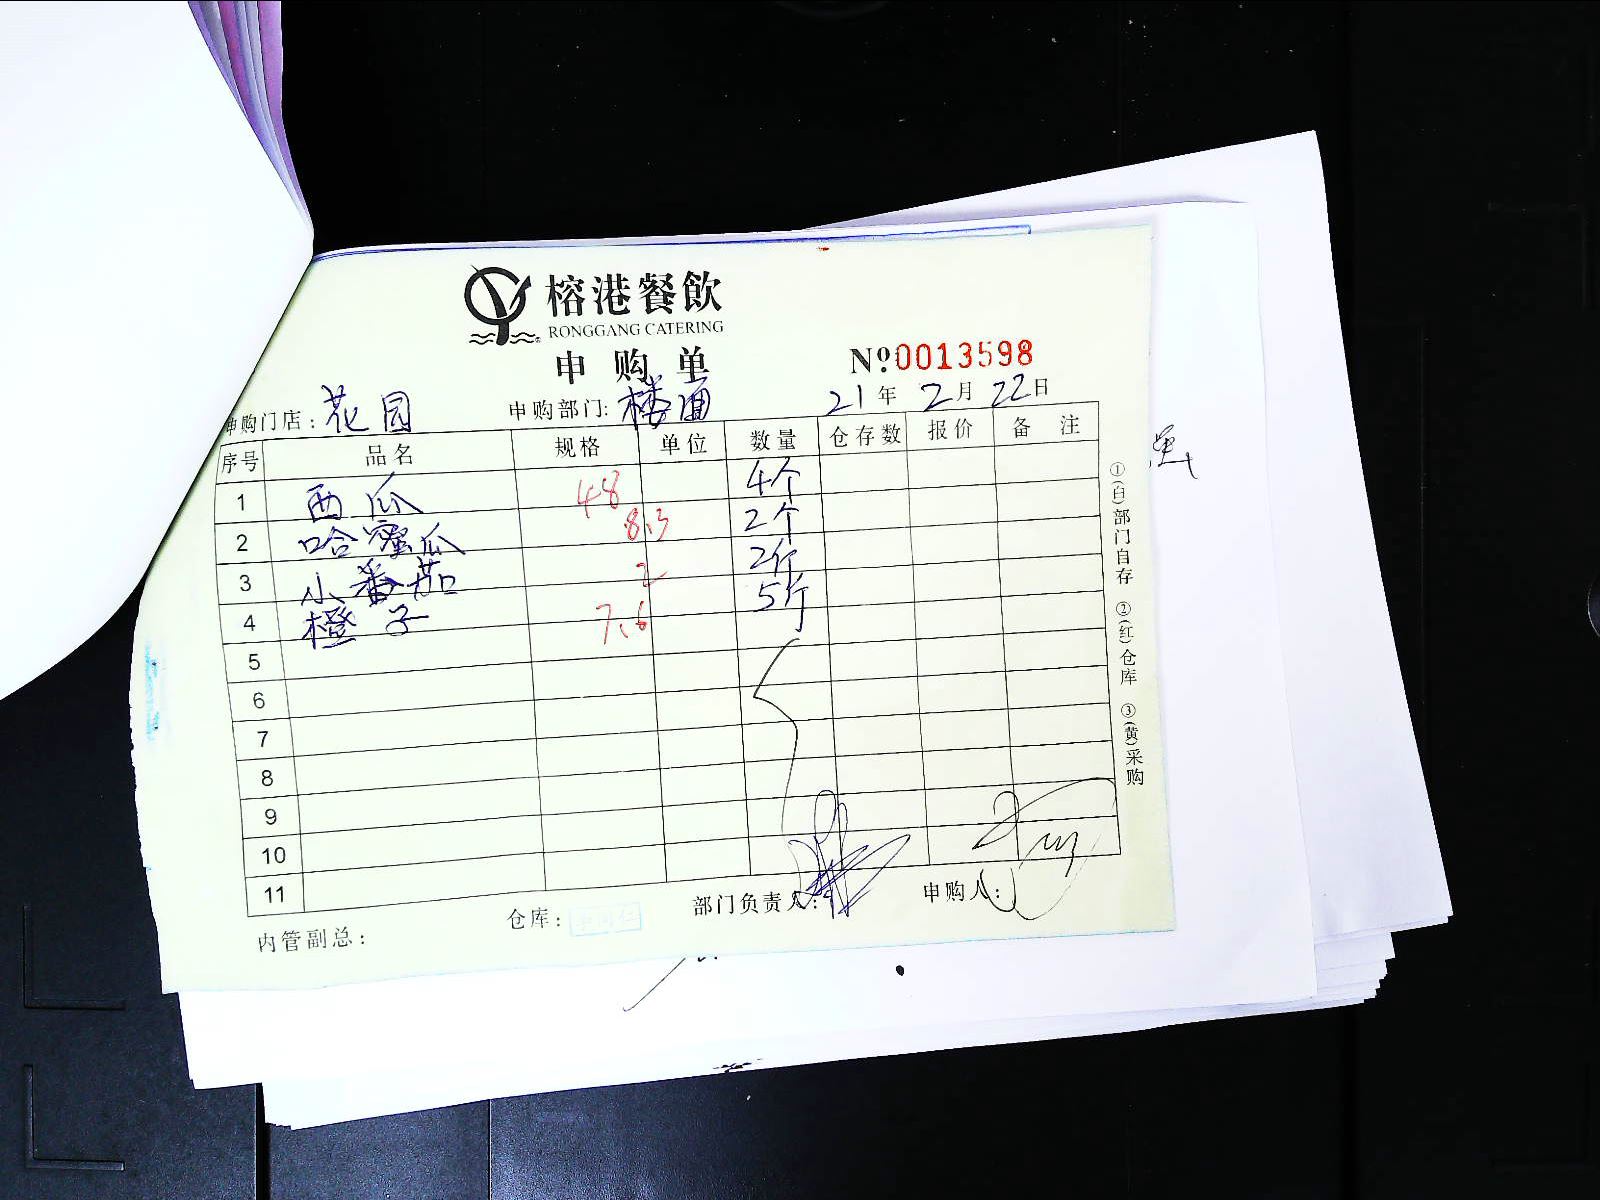 榕港餐飲
RONGGANG CATERING
申购单
Nº:0013598
申购门店：花园 申购部门：楼面 21年2月22日
序号 品名 规格 单位 数量 仓存数 报价 备注
1 西瓜 48 4个
2 哈蜜瓜 8.3 2个
3 小番茄 2 2斤
4 橙子 7.6 5斤
5
6
7
8
9
10
11
①(白)部门自存 ②(红)仓库 ③(黄)采购
内管副总： 仓库： 部门负责人： 申购人：